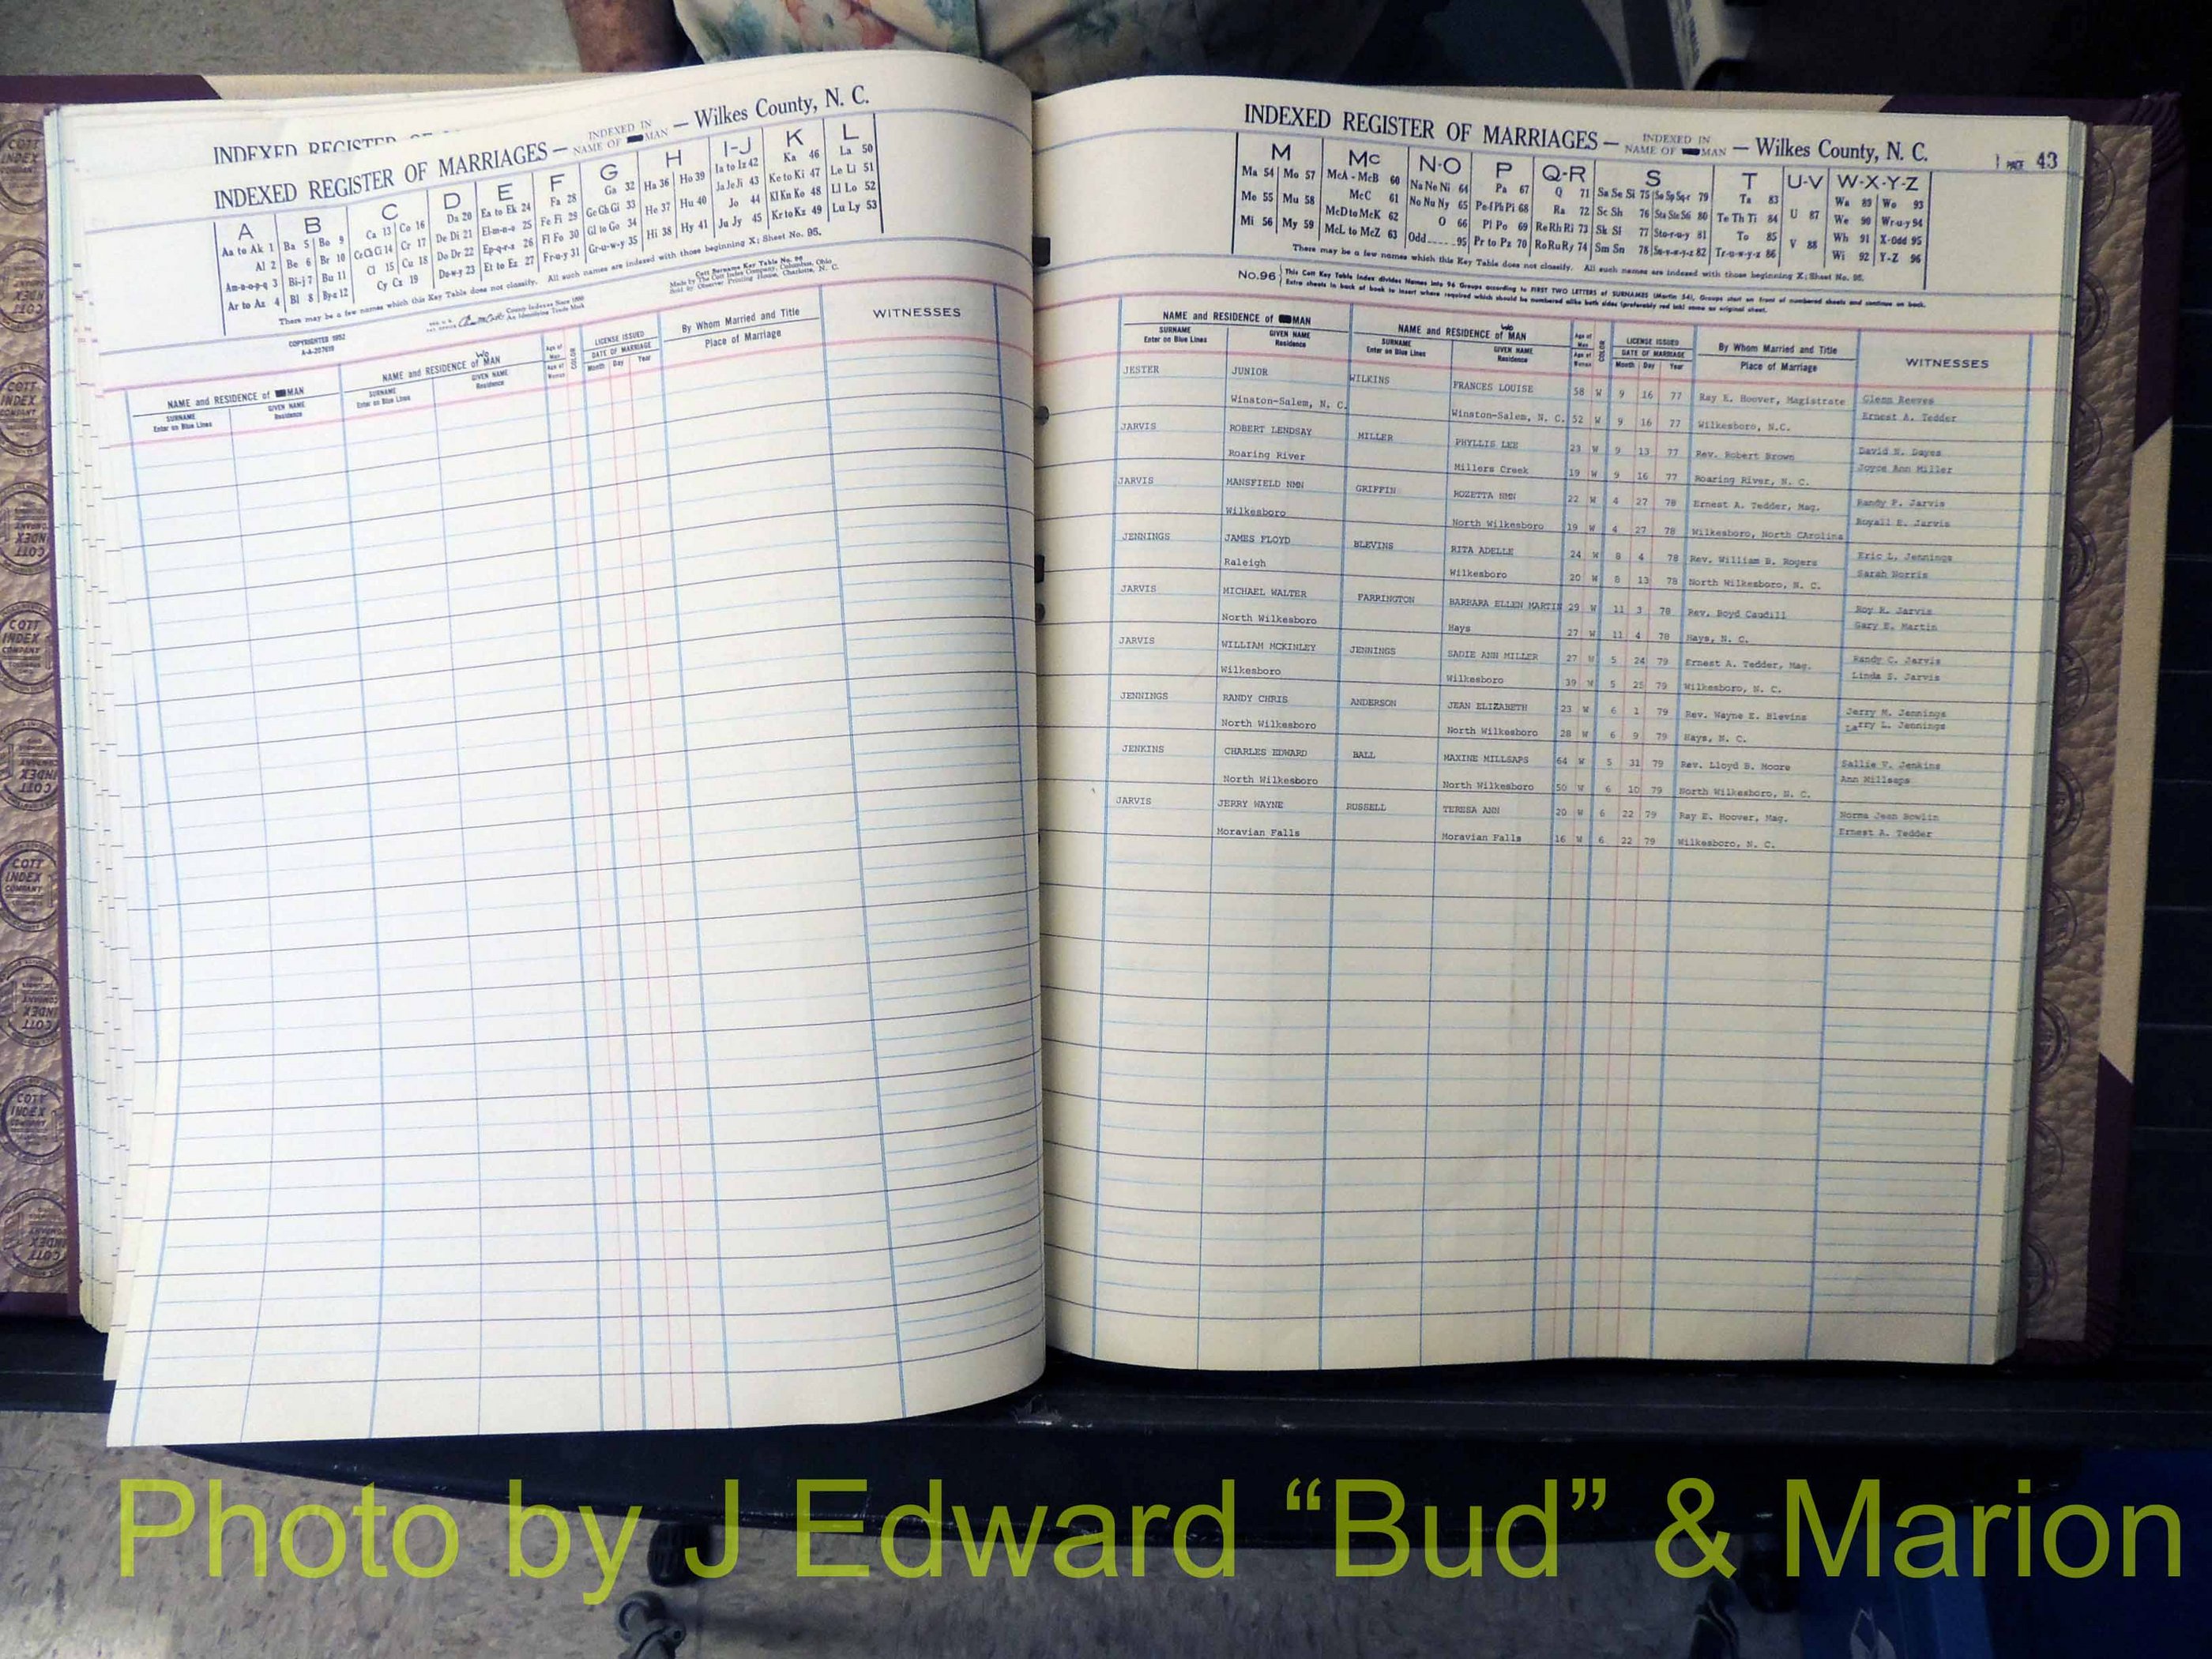 INDEXED REGISTER OF MARRIAGES — INDEXED IN NAME OF MAN — Wilkes County, N. C.
A B C D E F G H I-J K L
Aa to Ak 1 Ba 5 Bo 9 Ca 13 Co 16 Da 20 Ea to Ek 24 Fa 28 Ga 32 Ha 36 Ho 39 Ia to Iz 42 Ka 46 La 50
Al 2 Be 6 Br 10 Ce Ch Ci 14 Cr 17 De Di 21 El-m-n-o 25 Fe Fi 29 Ge Gh Gi 33 He 37 Hu 40 Ja Je Ji 43 Ke to Ki 47 Le Li 51
Am-n-o-p-q 3 Bi-j 7 Bu 11 Cl 15 Cu 18 Do Dr 22 Ep-q-r-s 26 Fl Fo 30 Gl to Go 34 Hi 38 Hy 41 Jo 44 Kl Kn Ko 48 Ll Lo 52
Ar to Az 4 Bl 8 By-z 12 Cy Cz 19 Du-w-y 23 Et to Ez 27 Fr-u-y 31 Gr-u-w-y 35 Ju Jy 45 Kr to Kz 49 Lu Ly 53
There may be a few names which this Key Table does not classify. All such names are indexed with those beginning X; Sheet No. 95.
COPYRIGHTED 1952
Cott Surname Key Table No. 96
Made by The Cott Index Company, Columbus, Ohio
Sold by Observer Printing House, Charlotte, N. C.
County Indexes Since 1888
An Identifying Trade Mark
NAME and RESIDENCE of MAN NAME and RESIDENCE of WoMAN Age of Man Age of Woman COLOR LICENSE ISSUED DATE OF MARRIAGE Month Day Year By Whom Married and Title Place of Marriage WITNESSES
SURNAME Enter on Blue Lines GIVEN NAME Residence SURNAME Enter on Blue Lines GIVEN NAME Residence
INDEXED REGISTER OF MARRIAGES — INDEXED IN NAME OF MAN — Wilkes County, N. C. PAGE 43
M Mc N-O P Q-R S T U-V W-X-Y-Z
Ma 54 Mo 57 McA - McB 60 Na Ne Ni 64 Pa 67 Q 71 Sa Se Si 75 So Sp Sq-r 79 Ta 83 Wa 89 Wo 93
Me 55 Mu 58 McC 61 No Nu Ny 65 Pe-f Ph Pi 68 Ra 72 Sc Sh 76 Sta Ste Sti 80 Te Th Ti 84 U 87 We 90 Wr-u-y 94
Mi 56 My 59 McD to McK 62 O 66 Pl Po 69 Re Rh Ri 73 Sk Sl 77 Sto-r-u-y 81 To 85 V 88 Wh 91 X-Odd 95
McL to McZ 63 Odd 95 Pr to Pz 70 Ro Ru Ry 74 Sm Sn 78 Su-v-w-y-z 82 Tr-u-w-y-z 86 Wi 92 Y-Z 96
There may be a few names which this Key Table does not classify. All such names are indexed with those beginning X; Sheet No. 95.
No. 96 This Cott Key Table Index divides Names into 96 Groups according to FIRST TWO LETTERS of SURNAMES (Martin 54), Groups start on front of numbered sheets and continue on back.
Extra sheets in back of book to insert where required which should be numbered alike both sides (preferably red ink) same as original sheet.
NAME and RESIDENCE of MAN NAME and RESIDENCE of WoMAN Age of Man Age of Woman COLOR LICENSE ISSUED DATE OF MARRIAGE Month Day Year By Whom Married and Title Place of Marriage WITNESSES
SURNAME Enter on Blue Lines GIVEN NAME Residence SURNAME Enter on Blue Lines GIVEN NAME Residence
JESTER JUNIOR WILKINS FRANCES LOUISE 58 W 9 16 77 Ray E. Hoover, Magistrate Glenn Reeves
Winston-Salem, N. C. Winston-Salem, N. C. 52 W 9 16 77 Wilkesboro, N.C. Ernest A. Tedder
JARVIS ROBERT LENDSAY MILLER PHYLLIS LEE 23 W 9 13 77 Rev. Robert Brown David N.
Roaring River Millers Creek 19 W 9 16 77 Roaring River, N. C. Joyce Ann Miller
JARVIS MANSFIELD NMN GRIFFIN ROZETTA NMN 22 W 4 27 78 Ernest A. Tedder, Mag. Randy P. Jarvis
Wilkesboro North Wilkesboro 19 W 4 27 78 Wilkesboro, North CArolina Royall E. Jarvis
JENNINGS JAMES FLOYD BLEVINS RITA ADELLE 24 W 8 4 78 Rev. William B. Rogers Eric L. Jennings
Raleigh Wilkesboro 20 W 8 13 78 North Wilkesboro, N. C. Sarah Norris
JARVIS MICHAEL WALTER FARRINGTON BARBARA ELLEN MARTIN 29 W 11 3 78 Rev. Boyd Caudill Roy R. Jarvis
North Wilkesboro Hays 27 W 11 4 78 Hays, N. C. Gary E. Martin
JARVIS WILLIAM MCKINLEY JENNINGS SADIE ANN MILLER 27 W 5 24 79 Ernest A. Tedder, Mag. Randy C. Jarvis
Wilkesboro Wilkesboro 39 W 5 25 79 Wilkesboro, N. C. Linda S. Jarvis
JENNINGS RANDY CHRIS ANDERSON JEAN ELIZABETH 23 W 6 1 79 Rev. Wayne E. Blevins Jerry M. Jennings
North Wilkesboro North Wilkesboro 28 W 6 9 79 Hays, N. C. Larry L. Jennings
JENKINS CHARLES EDWARD BALL MAXINE MILLSAPS 64 W 5 31 79 Rev. Lloyd B. Moore Sallie V. Jenkins
North Wilkesboro North Wilkesboro 50 W 6 10 79 North Wilkesboro, N. C. Ann Millsaps
JARVIS JERRY WAYNE RUSSELL TERESA ANN 20 W 6 22 79 Ray E. Hoover, Mag. Norma Jean Bowlin
Moravian Falls Moravian Falls 16 W 6 22 79 Wilkesboro, N. C. Ernest A. Tedder
Photo by J Edward “Bud” & Marion